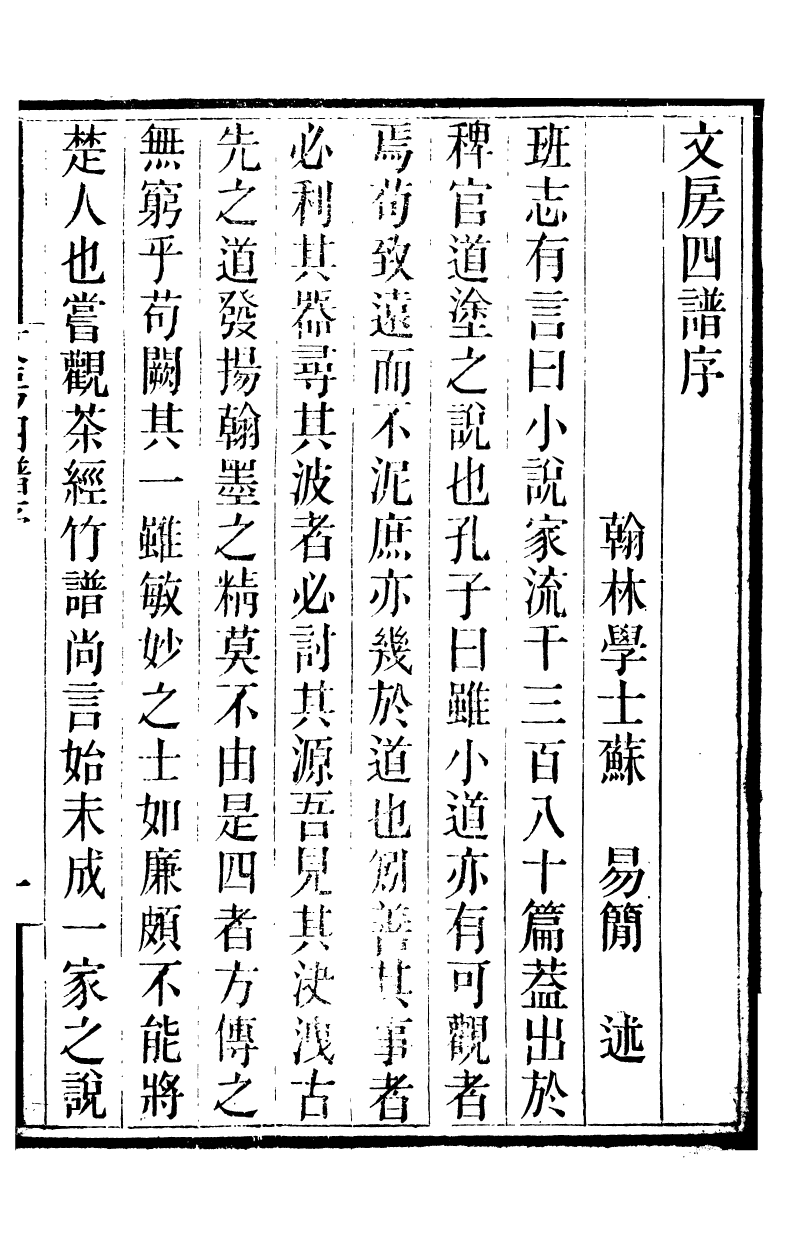 文房四譜序
翰林學士蘇　易簡　述
班志有言曰小說家流千三百八十篇葢出於
稗官道塗之說也孔子曰雖小道亦有可觀者
焉苟致遠而不泥庶亦幾於道也矧善其事者
必利其器尋其波者必討其源吾見其決洩古
先之道發揚翰墨之精莫不由是四者方傳之
無窮乎苟闕其一雖敏妙之士如廉頗不能將
楚人也嘗觀茶經竹譜尚言始末成一家之說
四譜序
一